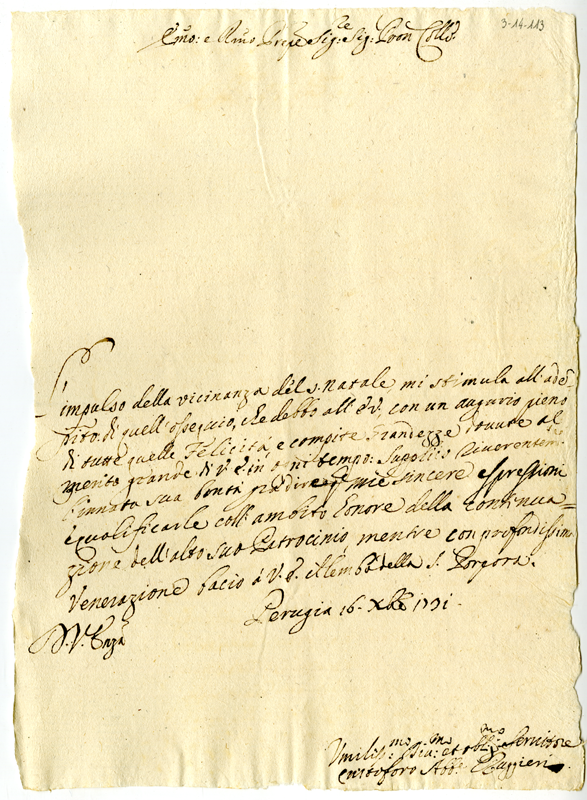 3-14-113
Emo: e Rmo Prnpe Sig:re e Sig: Pron Collo:
L'impulso della vicinanza del S. Natale mi stimula all'adem=
pito di quell'ossequio, che debbo all'E.V. con un augurio pieno
di tutte quelle Felicità e compite Grandezze dovute al
merito grande di V.E. in ogni tempo: Supplico riverentem.
l'innata sua bontà gradire mie sincere espressioni
e qualificarle coll'ambito Honore della continua=
zione dell'alto suo Patrocinio mentre con profondissima
Venerazione bacio à V.E. il lembo della S. Porpora.
Perugia 16. Xbre 1731.
D.V. Enza
Umiliss.mo Div:mo et obbl:mo Servitore
Cristoforo Abb:e Ruggieri